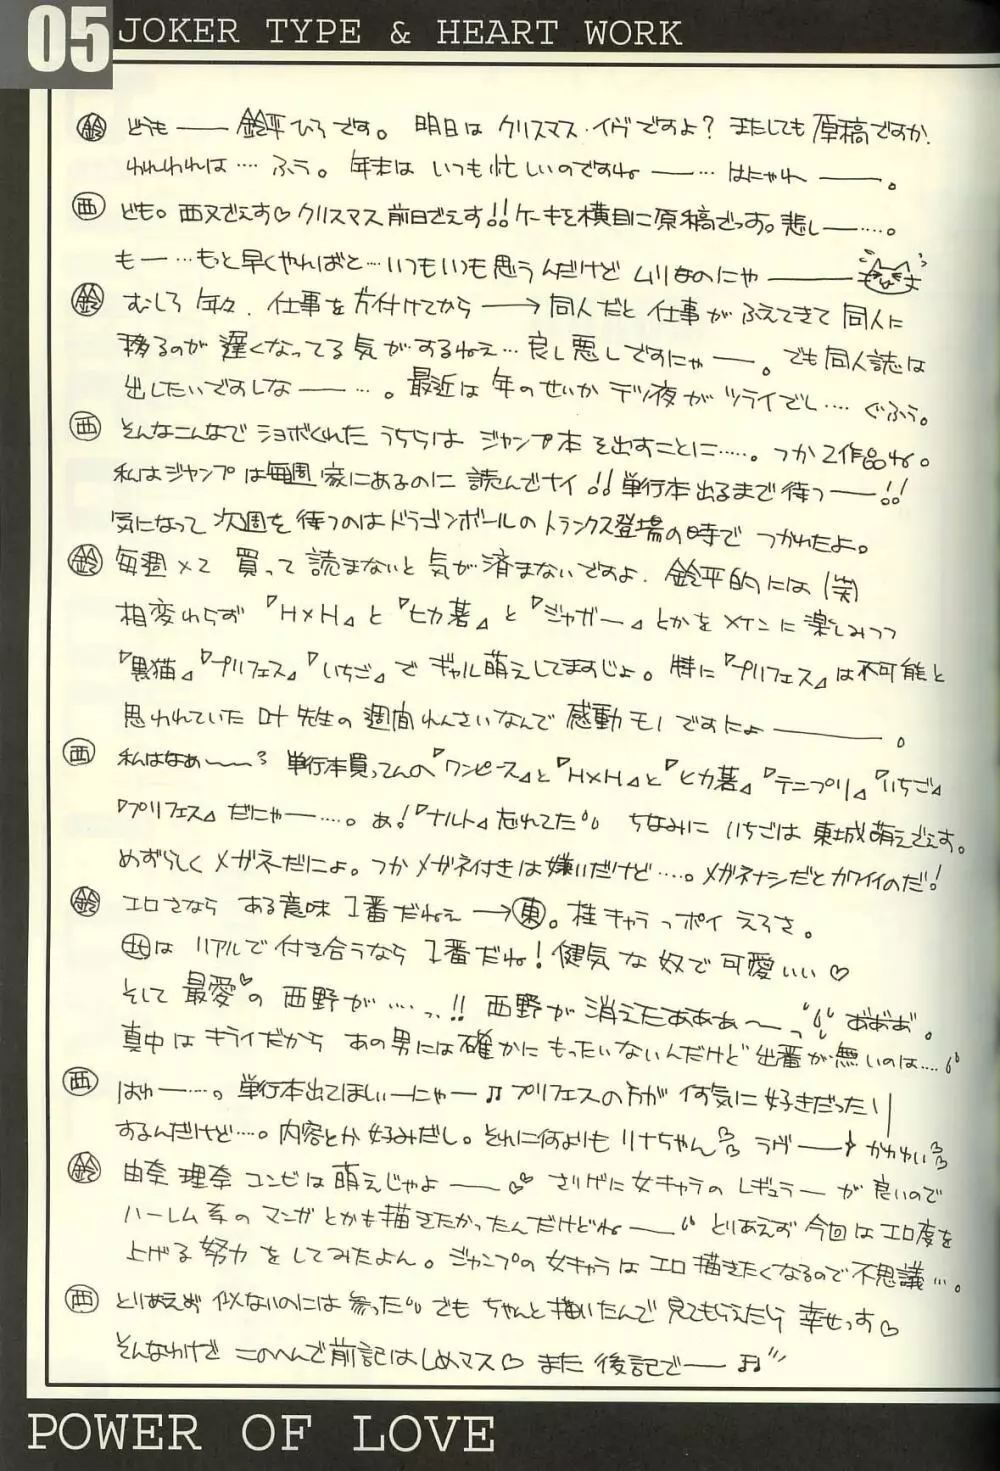 05 JOKER TYPE & HEART WORK
鈴 どうも── 鈴平ひろです。 明日は クリスマス・イヴですよ? またしても 原稿ですか、
われわれは…. ふう。 年末は いつも忙しいのですね ──… はにゃわ ──。
西 ども。西又でぇす♡クリスマス前日でぇす!!ケーキを横目に原稿でっす。悲し──….。
もー…もっと早くやればと…いつもいつも思うんだけど ムリなのにゃ ────
鈴 むしろ 年々、仕事を片付けてから ──→ 同人だと 仕事が ふえてきて 同人に
移るのが 遅くなってる 気がするねぇ… 良し悪しですにゃ──。でも同人誌は
出したいですしな ──…。 最近は 年のせいか テツ夜が ツライでし…. ぐふぅ。
西 そんなこんなで ショボくれた うちらは ジャンプ本 を出すことに…..。つか2作品ね。
私はジャンプは毎週家にあるのに 読んでナイ!!単行本出るまで待つ──!!
気になって 次週を 待つのはドラゴンボールの トランクス登場の時で つかれたよ。
鈴 毎週×2 買って 読まないと 気が済まないですよ、鈴平的には(笑)
相変わらず 『H×H』と『ヒカ碁』と『ジャガー』とかを メインに 楽しみつつ
『黒猫』『プリフェス』『いちご』で ギャル萌えしてますじょ。特に『プリフェス』は不可能と
思われていた 叶先生の 週間れんさいなんで 感動モノですにょ ────。
西 私はなぁ〜〜? 単行本買ってんの『ワンピース』と『H×H』と『ヒカ碁』『テニプリ』『いちご』
『プリフェス』だにゃ──….。あ!『ナルト』忘れてた ちなみに いちごは 東城萌えでぇす。
めずらしく メガネだにょ。つかメガネ付きは嫌いだけど….。メガネナシだとカワイイのだ!
鈴 エロさなら ある意味 1番だねぇ ─→東。桂キャラっポイ えろさ。
北は リアルで 付き合うなら 1番だね!健気な奴で可愛いい♡
そして 最愛♡の 西野が….っ!! 西野が消えたあああ〜っ あ゛あ゛あ゛。
真中はキライだから あの男には確かに もったいないんだけど 出番が無いのは….
西 はゎ──….。単行本出てほしぃーにゃー♫プリフェスの方が 何気に 好きだったり
するんだけど….。内容とか好みだし。それに何よりも リナちゃん ラヴ── かわゆい
鈴 由奈 理奈 コンビは 萌えじゃよ ──♡ さりげに 女キャラの レギュラーが 良いので
ハーレム系の マンガとかも描きたかったんだけどね── とりあえず 今回は エロ度を
上げる努力をしてみたよん。ジャンプの 女キャラは エロ描きたくなるので不思議…。
西 とりあえず 似ないのには 参った でも ちゃんと描いたんで 見てもらえたら 幸せっす♡
そんなわけで このへんで前記はしめマス♡ また 後記で──♫
POWER OF LOVE